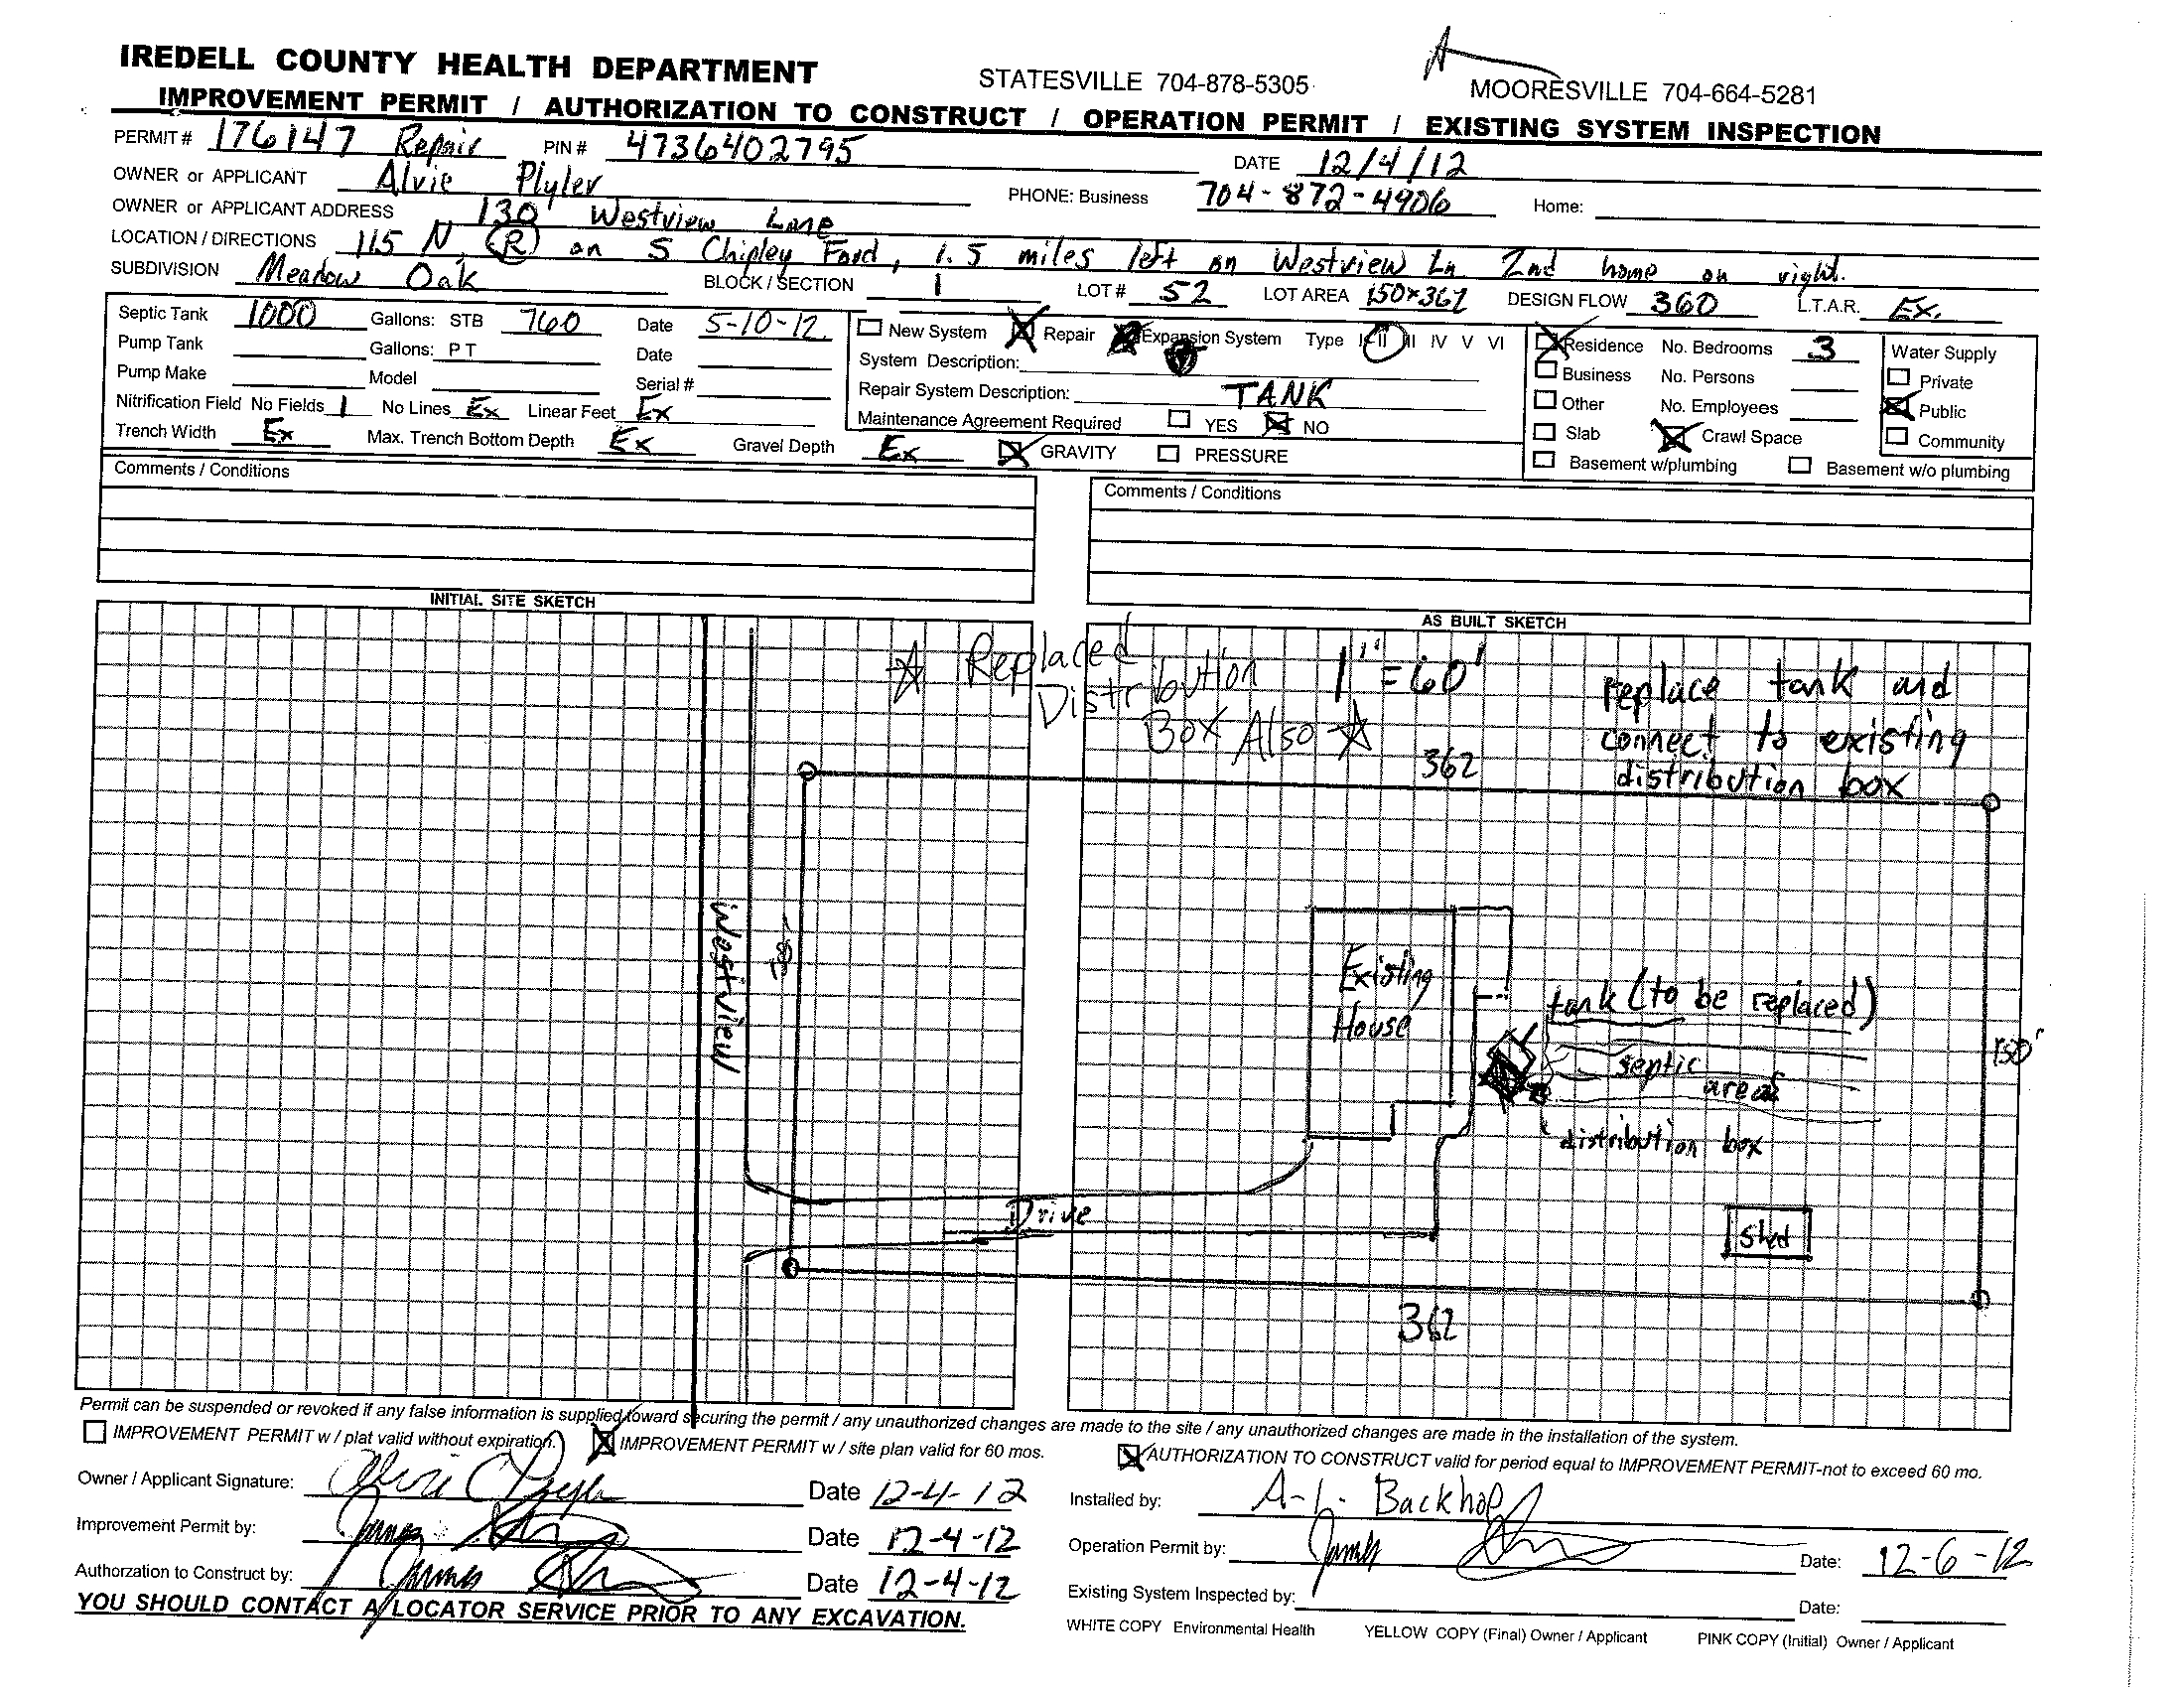 IREDELL COUNTY HEALTH DEPARTMENT STATESVILLE 704-878-5305 MOORESVILLE 704-664-5281
IMPROVEMENT PERMIT / AUTHORIZATION TO CONSTRUCT / OPERATION PERMIT / EXISTING SYSTEM INSPECTION
PERMIT # 176147 Repair PIN # 4736402795 DATE 12/4/12
OWNER or APPLICANT Alvie Plyler PHONE: Business 704-872-4906 Home:
OWNER or APPLICANT ADDRESS 130 Westview Lane
LOCATION / DIRECTIONS 115 N (R) on S Chipley Ford, 1.5 miles left on Westview Ln 2nd home on right.
SUBDIVISION Meadow Oak BLOCK / SECTION 1 LOT # 52 LOT AREA 150x362 DESIGN FLOW 360 L.T.A.R. Ex.
Septic Tank 1000 Gallons: STB 760 Date 5-10-12
Pump Tank Gallons: PT Date
Pump Make Model Serial #
Nitrification Field No Fields 1 No Lines Ex Linear Feet Ex
Trench Width Ex Max. Trench Bottom Depth Ex Gravel Depth Ex GRAVITY PRESSURE
New System Repair Expansion System Type I II III IV V VI
System Description:
Repair System Description: TANK
Maintenance Agreement Required YES NO
Residence No. Bedrooms 3
Business No. Persons
Other No. Employees
Slab Crawl Space
Basement w/plumbing Basement w/o plumbing
Water Supply
Private
Public
Community
Comments / Conditions
Comments / Conditions
INITIAL SITE SKETCH
AS BUILT SKETCH
☆ Replaced
Distribution
Box Also ☆
1"=60'
replace tank and
connect to existing
distribution box
362
Westview
150'
Existing
House
tank (to be replaced)
septic
area
distribution box
150'
Drive
Shed
362
Permit can be suspended or revoked if any false information is supplied toward securing the permit / any unauthorized changes are made to the site / any unauthorized changes are made in the installation of the system.
IMPROVEMENT PERMIT w / plat valid without expiration. IMPROVEMENT PERMIT w / site plan valid for 60 mos. AUTHORIZATION TO CONSTRUCT valid for period equal to IMPROVEMENT PERMIT-not to exceed 60 mo.
Owner / Applicant Signature: Alvie C Plyler Date 12-4-12
Improvement Permit by: James Date 12-4-12
Authorzation to Construct by: James Date 12-4-12
YOU SHOULD CONTACT A LOCATOR SERVICE PRIOR TO ANY EXCAVATION.
Installed by: A-1 Backhoe
Operation Permit by: James Date: 12-6-12
Existing System Inspected by: Date:
WHITE COPY Environmental Health YELLOW COPY (Final) Owner / Applicant PINK COPY (Initial) Owner / Applicant